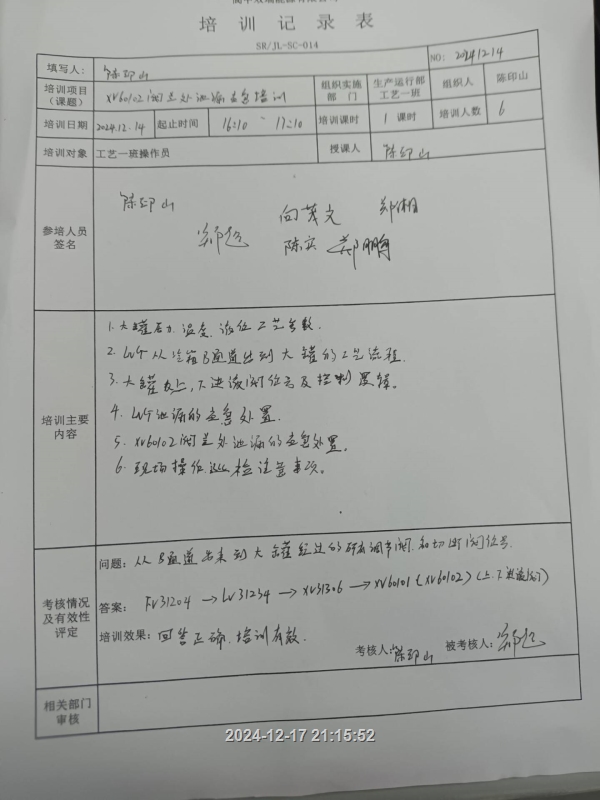 培 训 记 录 表
SR/JL-SC-014
NO: 2024.12.14
填写人: 陈印山
培训项目(课题) XV60102阀兰处泄漏应急培训 组织实施部门 生产运行部工艺一班 组织人 陈印山
培训日期 2024.12.14 起止时间 16:10 ~ 17:10 培训课时 1 课时 培训人数 6
培训对象 工艺一班操作员 授课人 陈印山
参培人员签名
陈印山 向茂文 郑湘
陈宾 郑鹏
培训主要内容
1. 大罐压力、温度、液位工艺参数.
2. LNG从冷箱B通道出到大罐的工艺流程.
3. 大罐上、下进液阀位号及控制逻辑。
4. LNG泄漏的应急处置.
5. XV60102阀兰处泄漏的应急处置。
6. 现场操作巡检注意事项。
考核情况及有效性评定
问题: 从B通道出来到大罐经过的所有调节阀和切断阀位号.
答案: FV31204 → LV31234 → XV31306 → XV60101 (XV60102) (上、下进液阀)
培训效果: 回答正确, 培训有效.
考核人: 陈印山 被考核人:
相关部门审核
2024-12-17 21:15:52